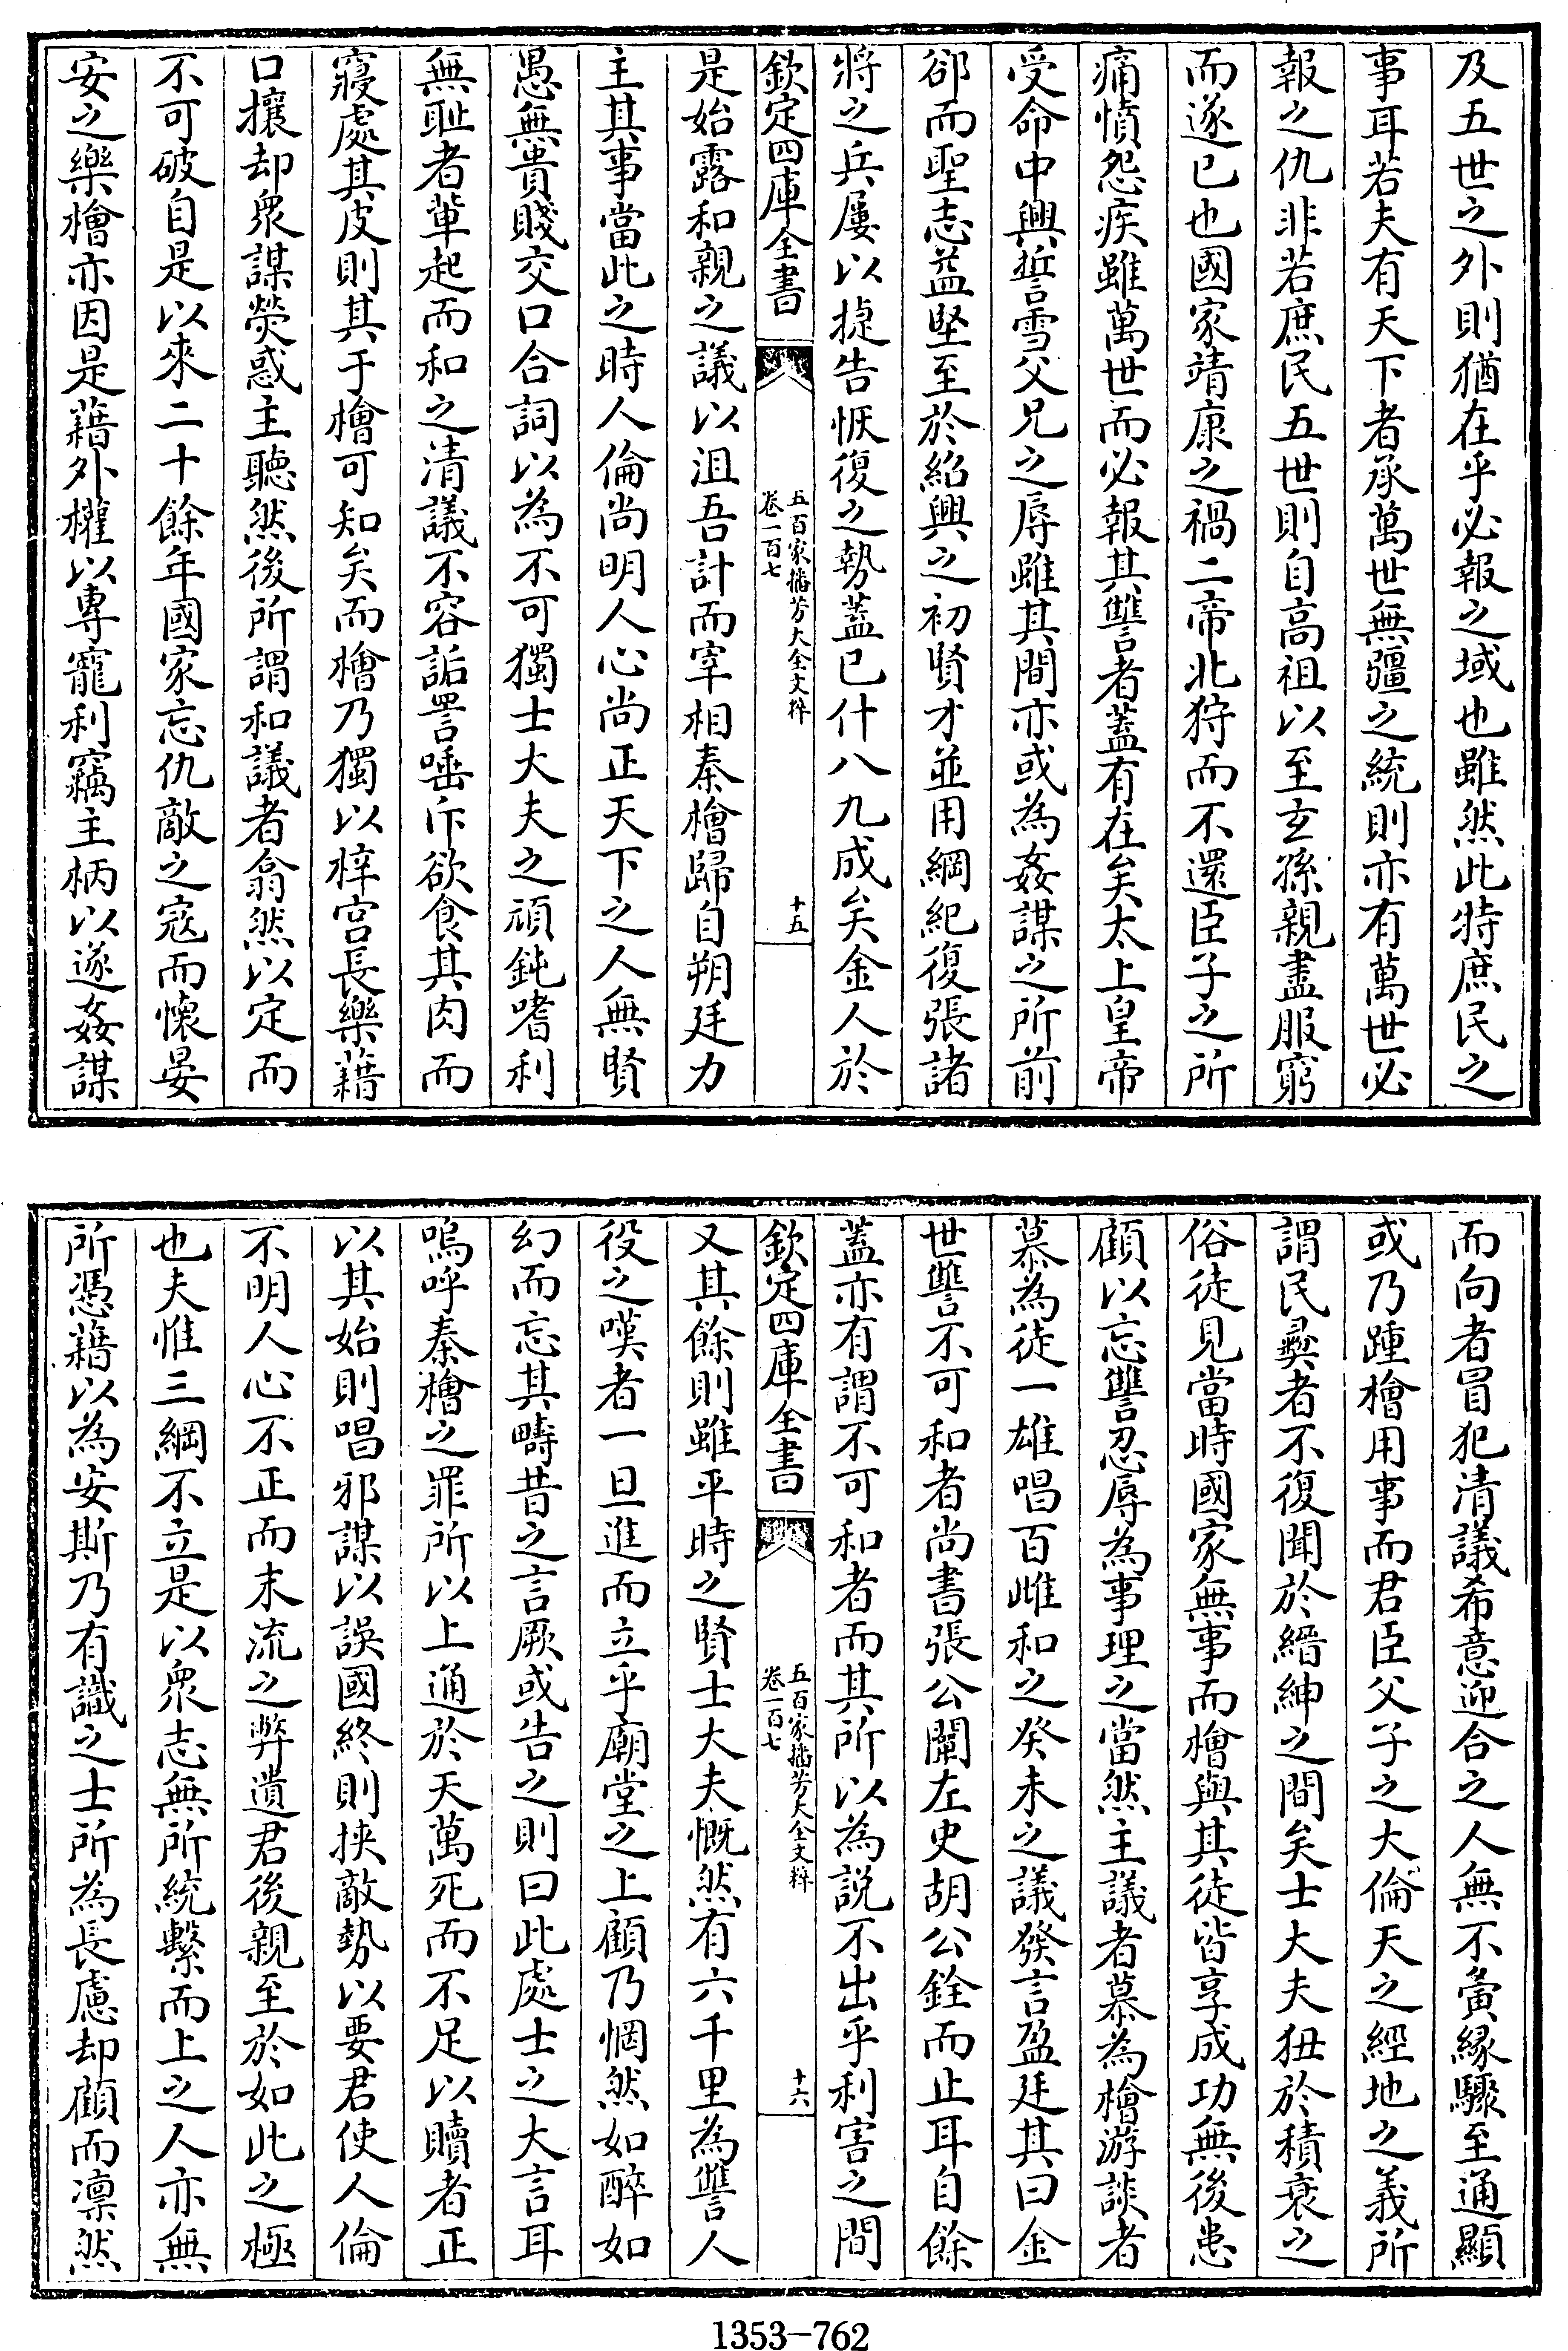 及五世之外則猶在乎必報之域也雖然此特庶民之
事耳若夫有天下者承萬世無疆之統則亦有萬世必
報之仇非若庶民五世則自高祖以至玄孫親盡服窮
而遂已也國家靖康之禍二帝北狩而不還臣子之所
痛憤怨疾雖萬世而必報其讐者蓋有在矣太上皇帝
受命中興誓雪父兄之辱雖其間亦或為姦謀之所前
郤而聖志益堅至於紹興之初賢才並用綱紀復張諸
將之兵屢以捷告恢復之勢蓋已什八九成矣金人於
欽定四庫全書
五百家播芳大全文粹
卷一百七
十五
是始露和親之議以沮吾計而宰相秦檜歸自朔廷力
主其事當此之時人倫尚明人心尚正天下之人無賢
愚無貴賤交口合詞以為不可獨士大夫之頑鈍嗜利
無恥者輩起而和之清議不容詬詈唾斥欲食其肉而
寢處其皮則其于檜可知矣而檜乃獨以梓宮長樂藉
口攘却衆謀熒惑主聽然後所謂和議者翕然以定而
不可破自是以來二十餘年國家忘仇敵之寇而懷晏
安之樂檜亦因是藉外權以專寵利竊主柄以遂姦謀
而向者冒犯清議希意迎合之人無不夤緣驟至通顯
或乃踵檜用事而君臣父子之大倫天之經地之義所
謂民彝者不復聞於縉紳之間矣士大夫狃於積衰之
俗徒見當時國家無事而檜與其徒皆享成功無後患
顧以忘讐忍辱為事理之當然主議者慕為檜游談者
慕為徒一雄唱百雌和之癸未之議發言盈廷其曰金
世讐不可和者尚書張公闡左史胡公銓而止耳自餘
蓋亦有謂不可和者而其所以為説不出乎利害之間
欽定四庫全書
五百家播芳大全文粹
卷一百七
十六
又其餘則雖平時之賢士大夫慨然有六千里為讐人
役之嘆者一旦進而立乎廟堂之上顧乃惘然如醉如
幻而忘其疇昔之言厥或告之則曰此處士之大言耳
嗚呼秦檜之罪所以上通於天萬死而不足以贖者正
以其始則唱邪謀以誤國終則挾敵勢以要君使人倫
不明人心不正而末流之弊遺君後親至於如此之極
也夫惟三綱不立是以衆志無所統繫而上之人亦無
所憑藉以為安斯乃有識之士所為長慮却顧而凜然
1353-762